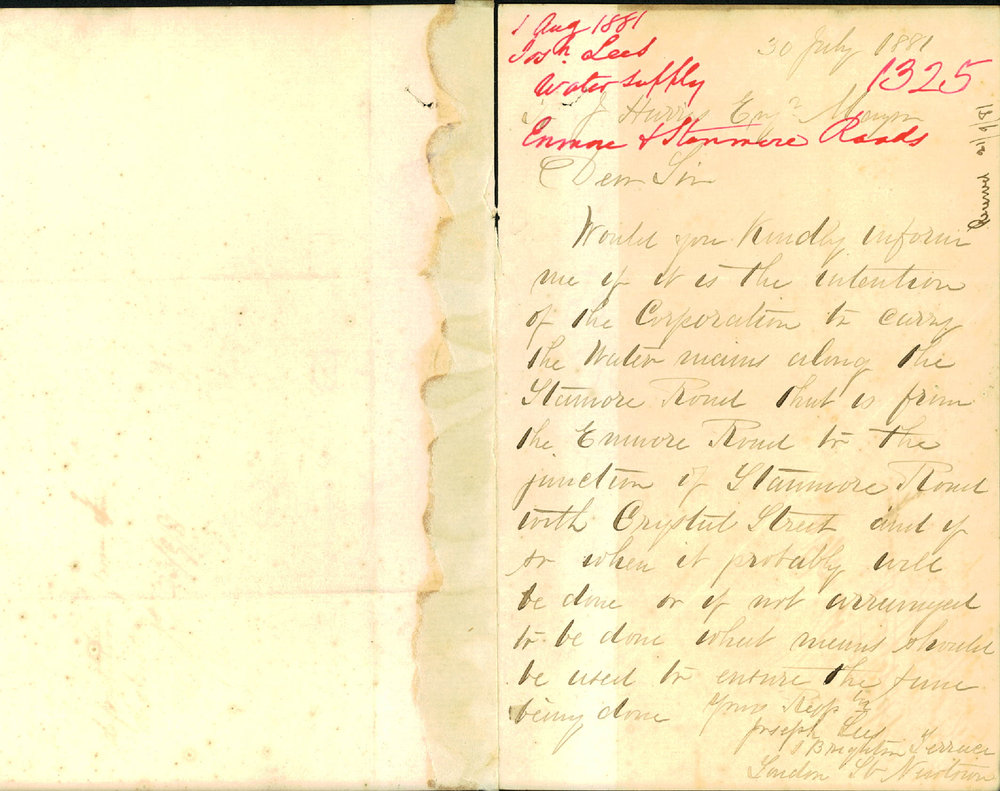 1 Aug 1881
Josh. Lees
Water supply
Enmore & Stanmore Roads
1325
30 July 1881
J Harris Esqr Mayor
Dear Sir
Would you Kindly inform
me if it is the intention
of the Corporation to carry
the Water mains along the
Stanmore Road that is from
the Enmore Road to the
junction of Stanmore Road
with Crystal Street and if
so when it probably will
be done or if not arranged
to be done what means should
be used to ensure the same
being done
Yours Respty
Joseph Lees
Brighton Terrace
London St Newtown